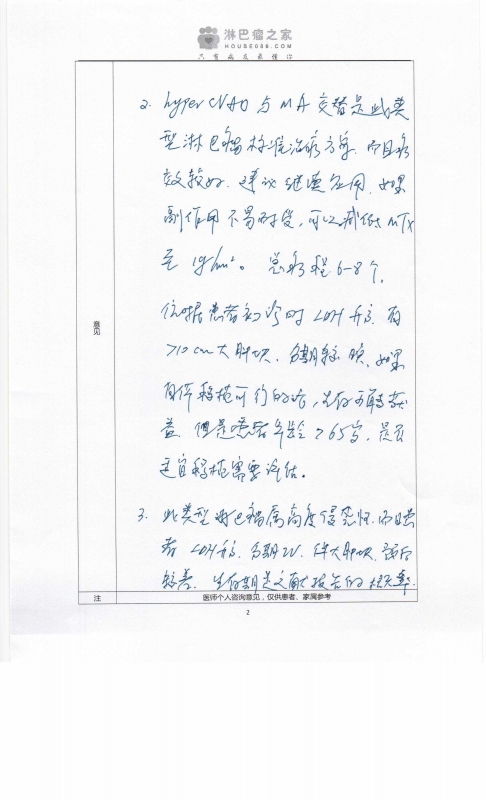 淋巴瘤之家
HOUSE086.COM
只有病友最懂你
2. hyper CVAD 与 MA 交替是此类
型淋巴瘤标准治疗方案，而且疗
效较好，建议继续应用，如果
副作用不易耐受，可以减低 MTX
至 1g/m²。总疗程 6-8个。
依据患者初诊时 LDH 升高，有
>10cm 大肿块，分期较晚，如果
自体移植可行的话，生存可再获
益。但是患者年龄 >65岁，是否
适宜移植需要评估。
3. 此类型淋巴瘤属高度侵袭性，而且患
者 LDH 升高，分期 IV，伴大肿块，预后
较差。生存期是文献报告的概率
意见
注
医师个人咨询意见，仅供患者、家属参考
2